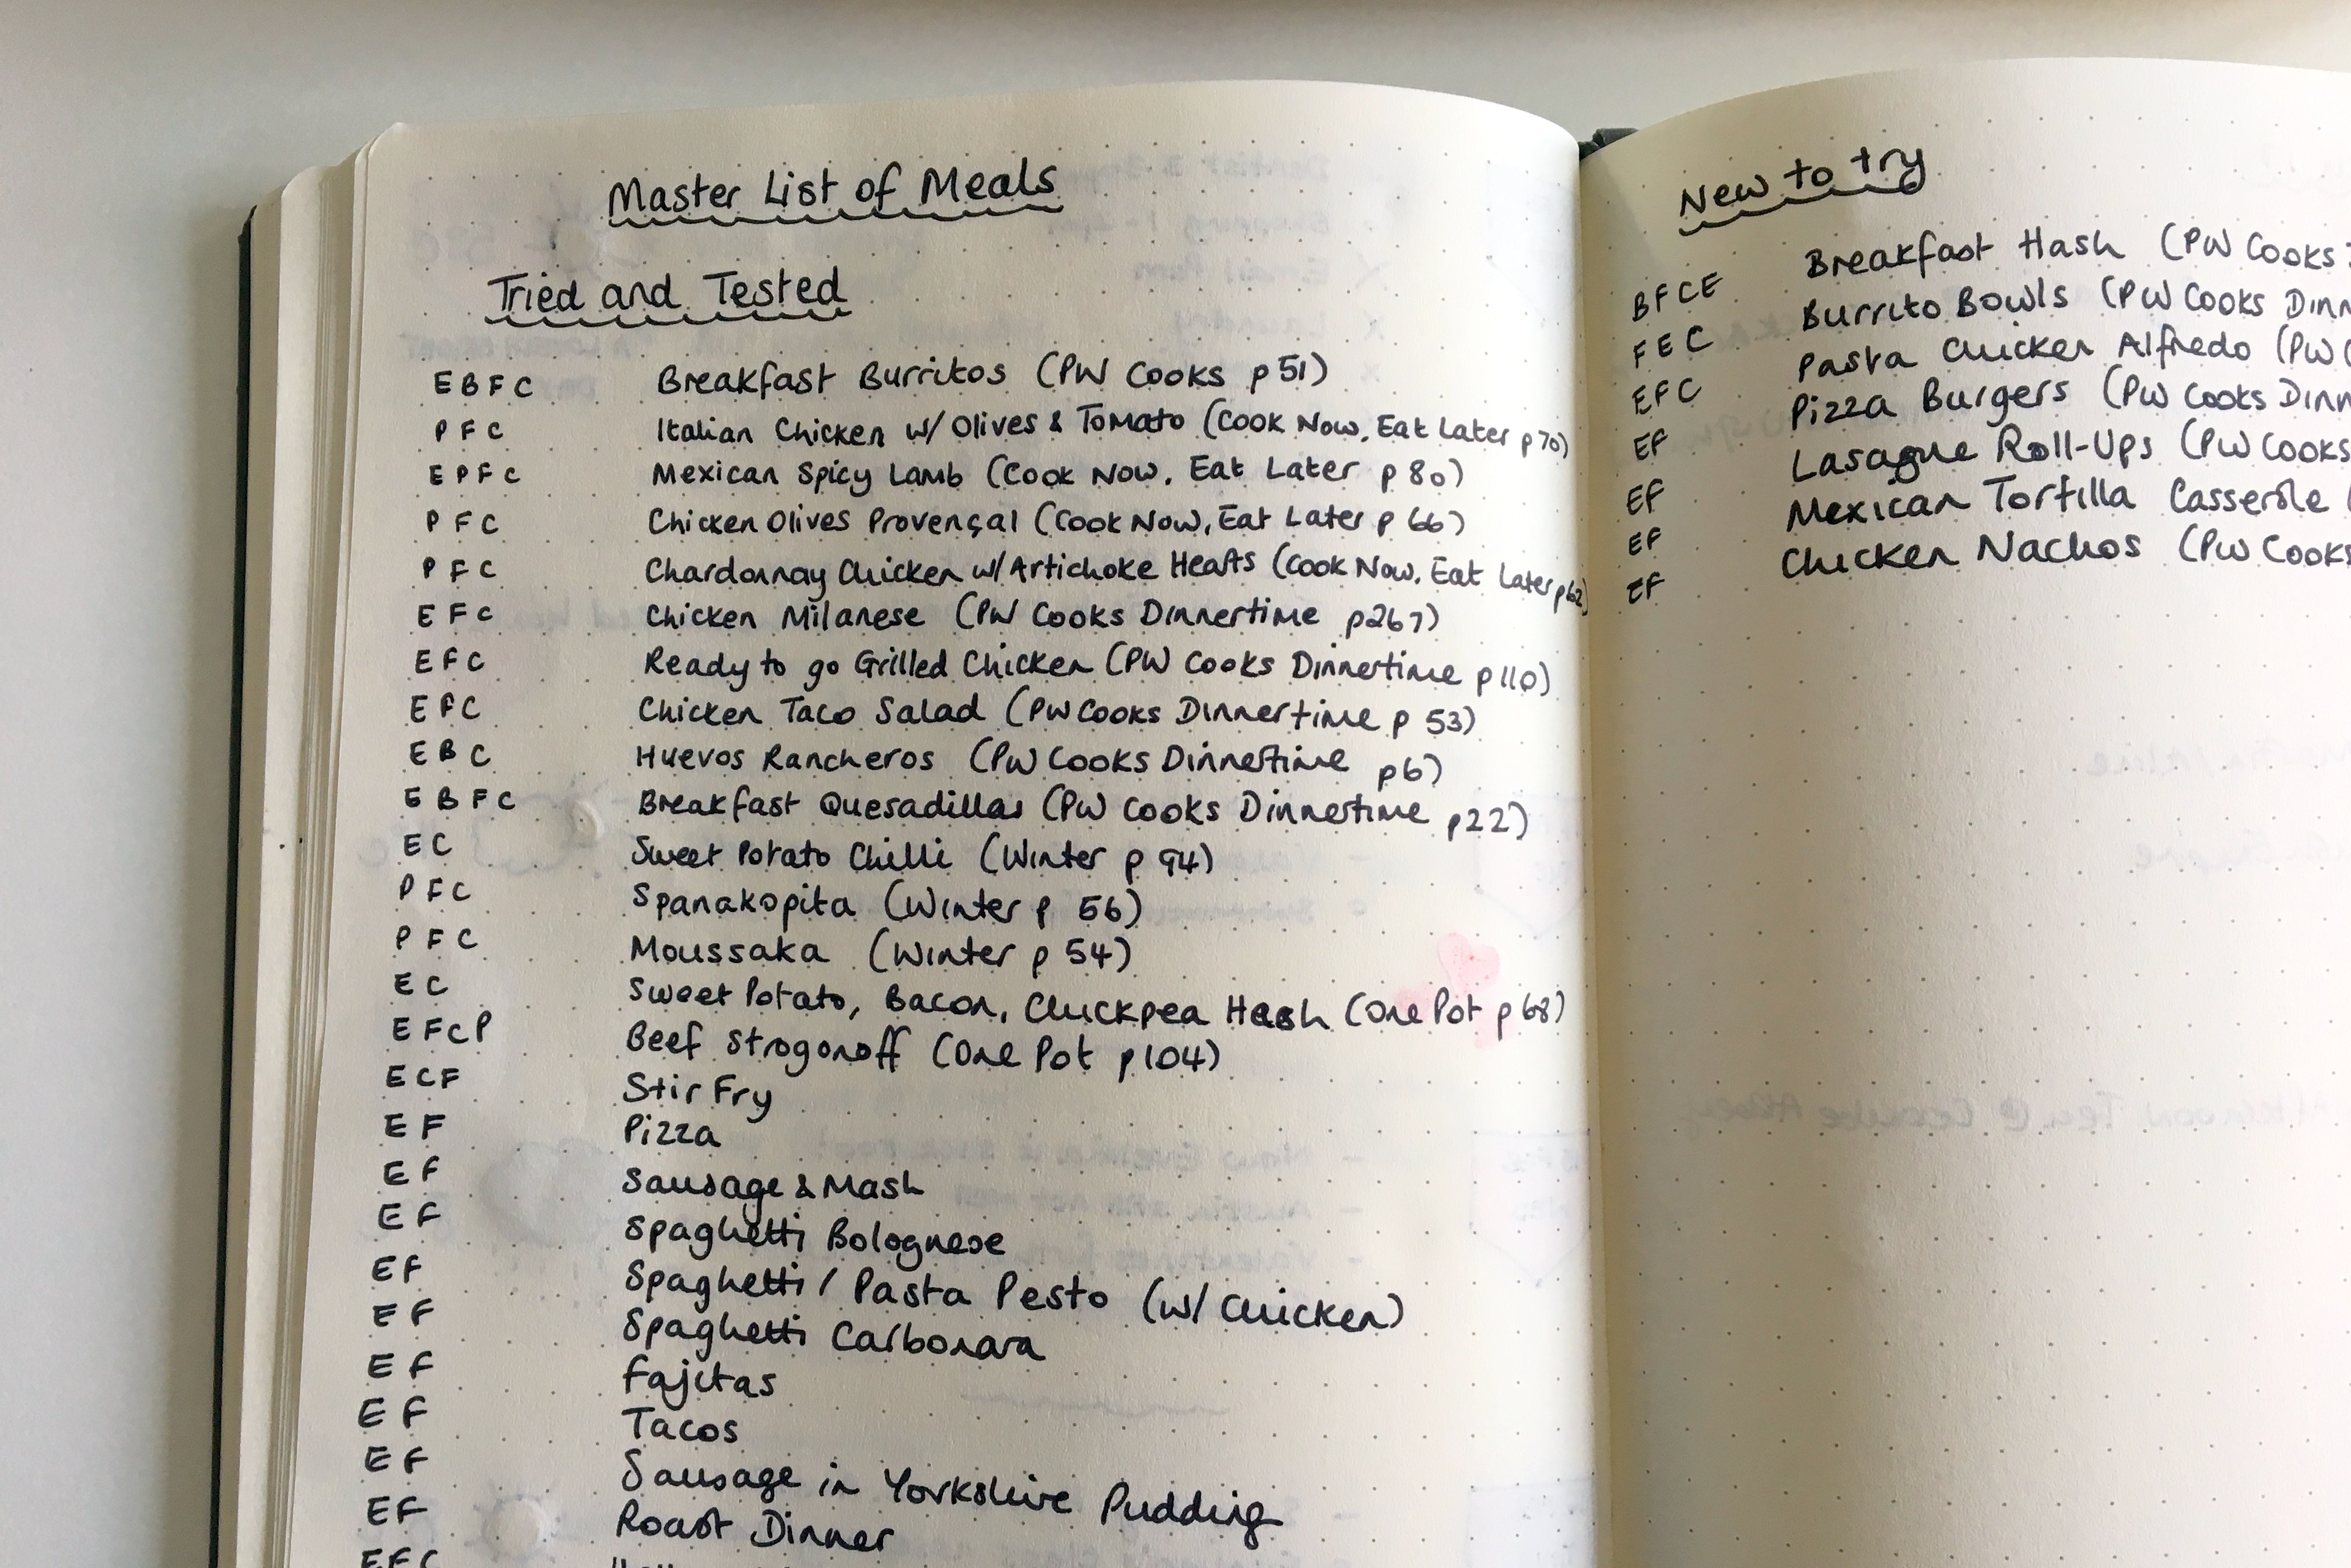 Master List of Meals
Tried and Tested
E B F C Breakfast Burritos (PW Cooks p51)
P F C Italian Chicken w/ Olives & Tomato (Cook Now, Eat Later p70)
E P F C Mexican Spicy Lamb (Cook Now, Eat Later p80)
P F C Chicken Olives Provençal (Cook Now, Eat Later p 66)
P F C Chardonnay Chicken w/ Artichoke Hearts (Cook Now, Eat Later p62)
E F C Chicken Milanese (PW Cooks Dinnertime p267)
E F C Ready to go Grilled Chicken (PW Cooks Dinnertime p110)
E F C Chicken Taco Salad (PW Cooks Dinnertime p 53)
E B C Huevos Rancheros (PW Cooks Dinnertime p6)
E B F C Breakfast Quesadillas (PW Cooks Dinnertime p22)
E C Sweet Potato Chilli (Winter p 94)
P F C Spanakopita (Winter p 56)
P F C Moussaka (Winter p 54)
E C Sweet Potato, Bacon, Chickpea Hash (One Pot p68)
E F C P Beef Strogonoff (One Pot p104)
E C F Stir Fry
E F Pizza
E F Sausage & Mash
E F Spaghetti Bolognese
E F Spaghetti / Pasta Pesto (w/ Chicken)
E F Spaghetti Carbonara
E F Fajitas
E F Tacos
E F Sausage in Yorkshire Pudding
E F Roast Dinner
E F C
New to try
B F C E Breakfast Hash (PW Cooks
F E C Burrito Bowls (PW Cooks Dinn
E F C Pasta Chicken Alfredo (PW C
E F Pizza Burgers (PW Cooks Dinn
E F Lasagne Roll-Ups (PW Cooks
E F Mexican Tortilla Casserole (
E F Chicken Nachos (PW Cooks